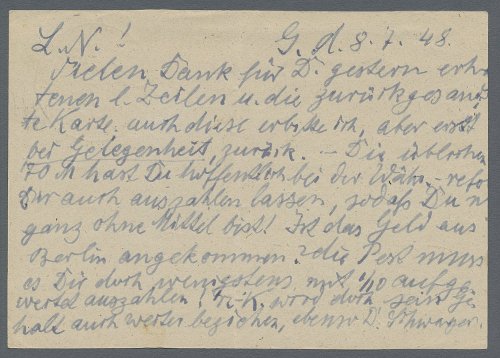 L. N.! G. d. 8. 7. 48.
Vielen Dank für D. gestern erhal
tenen l. Zeilen u. die zurückgesand
te Karte, auch diese erbitte ich, aber erst
bei Gelegenheit, zurück. – Die üblichen
70 M hast Du hoffentlich bei der Währ.-refo
Dir auch auszahlen lassen, sodaß Du n
ganz ohne Mittel bist! Ist das Geld aus
Berlin angekommen? die Post muss
es Dir doch wenigstens mit 1/10 aufge
wertet auszahlen! K. wird doch sein Ge
halt auch weiter beziehen, ebenso D. Schwager.